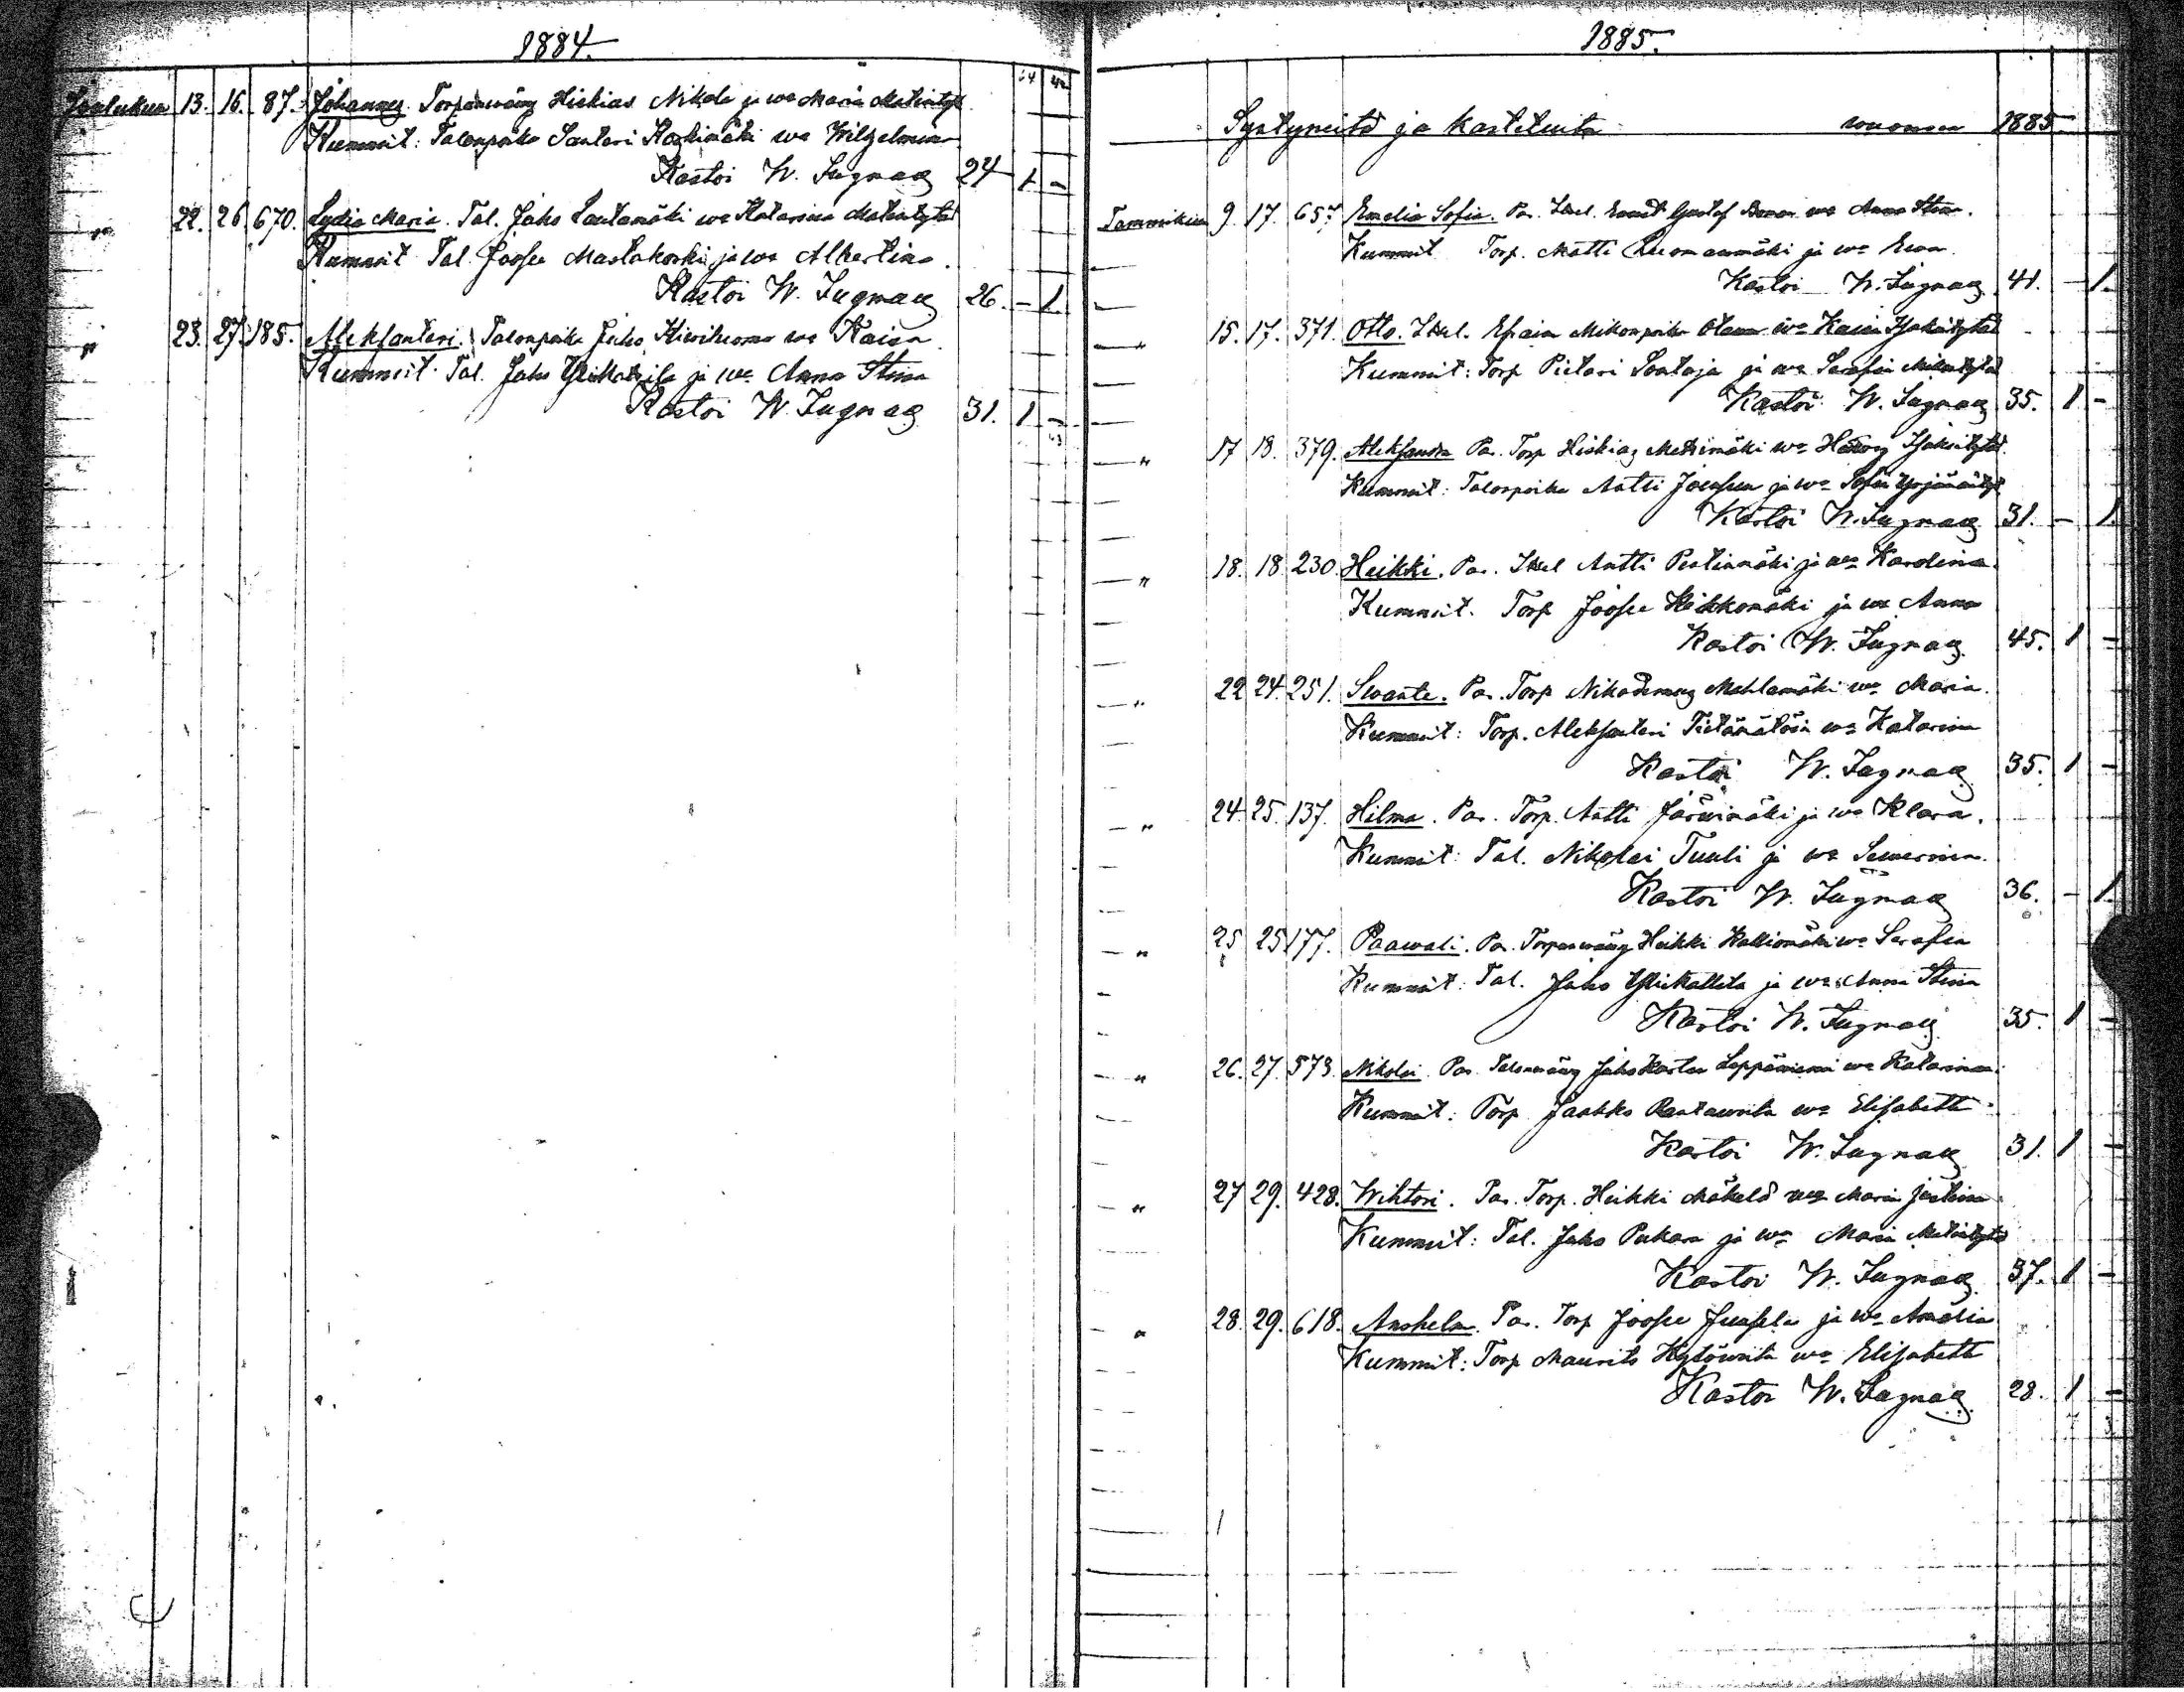 1884.
Joulukuu 13. 16. 87. Johannes. Torpanwäng Hiskias Nikola ja wa Maria Matintyt.
Kummit: Talonpoika Santeri Koskimäki wa Wilhelmina
Kastoi W. Ingman 24 1 -
" 22. 26. 670. Lydia Maria. Tal. Juho Lautamäki wa Katarina Matintytär
Kummit Tal. Joosee Mastokoski ja wa Albertina.
Kastoi W. Ingman 26. - 1
" 23. 27. 185. Aleksanteri. Talonpoika Juho Kiwiluoma wa Kaisa
Kummit. Tal. Juho ja wa Anna Stina
Kastoi W. Ingman 31. 1 -
1885.
Syntyneitä ja kastetuita wuonna 1885
Tammikuu 9. 17. 657 Emelia Sofia. Pa. Itsel. Gustaf wa Anna Stina.
Kummit Torp. Matti Luomanmäki ja wa Ewa.
Kastoi W. Ingman 41. - 1.
" 15. 17. 371. Otto. Itsel. Efraim Mikonpoika wa Kaisa Isakintytär
Kummit: Torp Pietari Sontaja ja wa Serafia
Kastoi W. Ingman 35. 1 -
" 17 18. 379. Aleksandra Pa. Torp Hiskias Metsimäki wa Isakintytär
Kummit: Talonpoika Antti ja wa Sofia Yrjänäntyt
Kastoi W. Ingman 31. - 1.
" 18. 18 230 Heikki. Pa. Itsel Antti Pentinmäki ja wa Karolina.
Kummit. Torp Joosee Heikkomäki ja wa Anna
Kastoi W. Ingman. 45. 1 -
" 22 24. 251. Swante. Pa. Torp Nikodemus Mahlamäki wa Maria.
Kummit: Torp. Aleksanteri wa Katarina
Kastoi W. Ingman 35. 1 -
" 24 25. 137. Hilma. Pa. Torp. Antti Järwimäki ja wa Klara.
Kummit: Tal. Nikolai Tuuli ja wa Sewerina.
Kastoi W. Ingman 36. - 1.
" 25 25 177. Paawali. Pa. Torpanwäng Heikki Kalliomäki wa Serafia
Kummit: Tal. Juho Ylikallila ja wa Anna Stina
Kastoi W. Ingman 35. 1 -
" 26. 27. 573. Nikolai. Pa. Talonwäng Juho Kustaa Leppäniemi wa Katarina.
Kummit: Torp Jaakko Rantawirta wa Elisabetta
Kastoi W. Ingman 31. 1 -
" 27 29. 428. Wihtori. Pa. Torp. Heikki Mäkelä wa Maria Justina
Kummit: Tal. Juho Pukara ja wa Maria Matintytär
Kastoi W. Ingman 37. 1 -
" 28. 29. 618. Anshelm. Pa. Torp Joosee Juusela ja wa Amalia
Kummit: Torp Maurits wa Elisabetta
Kastoi W. Ingman 28. 1 -